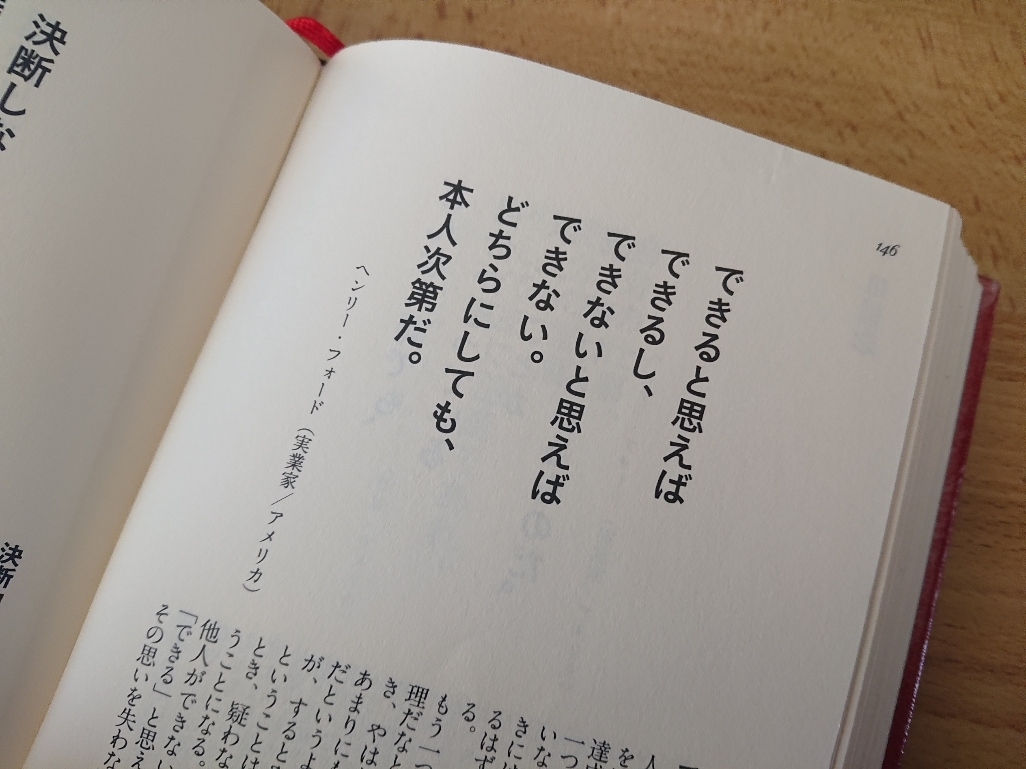 146
できると思えば
できるし、
できないと思えば
できない。
どちらにしても、
本人次第だ。
ヘンリー・フォード（実業家／アメリカ）
人
を
達成
一つ
いな
きには
るはず
る。
もう一つ
理だなと
き、やは
あまりにも
だというよ
が、すると
ということは
とき、疑わな
うことになる。
他人ができない
「できる」と思え
その思いを失わな
決断しな
決断し